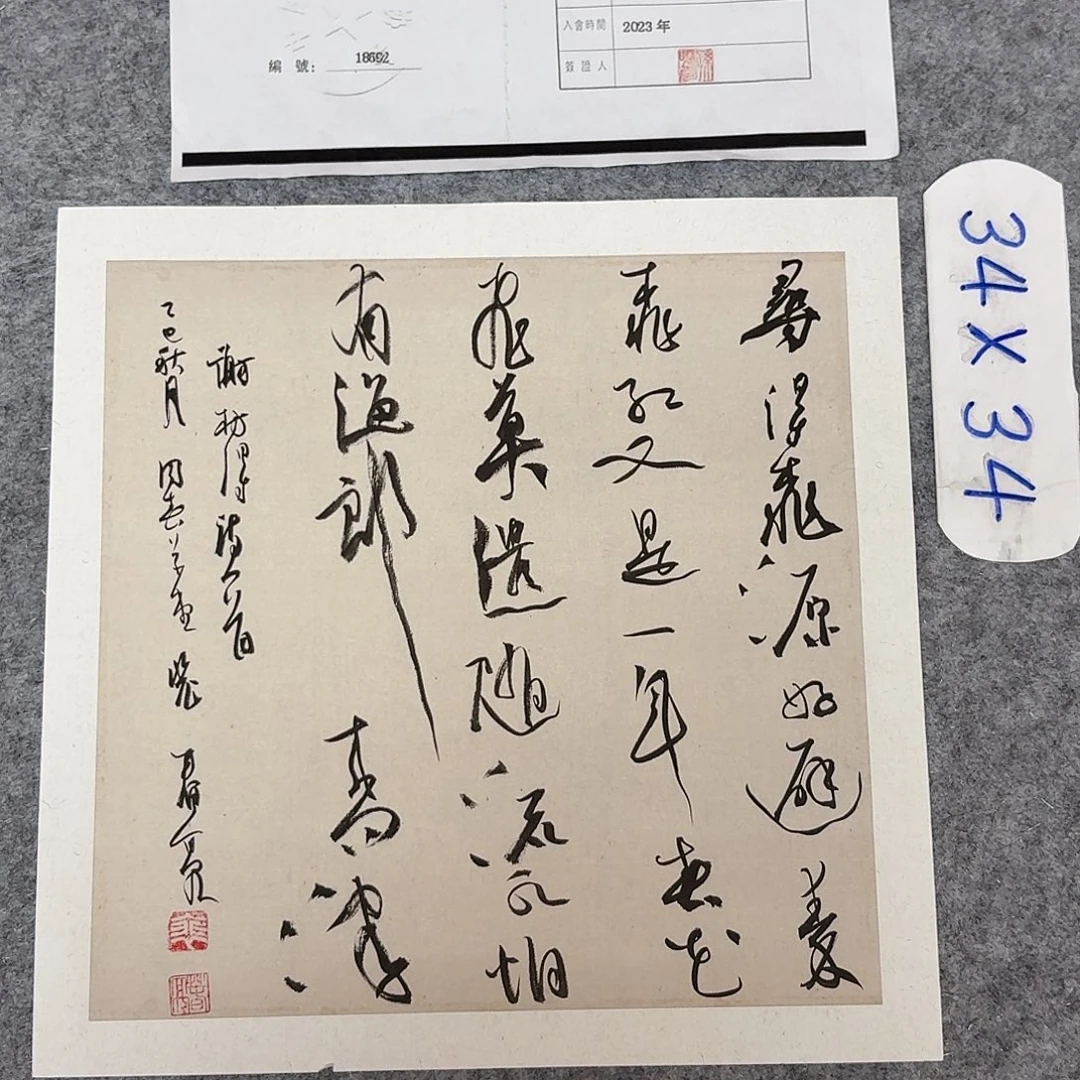 編 號: 18692
入會時間 2023 年
簽 證 人
34 X 34
尋得桃源好避秦
桃紅又是一年春花
飛莫遣随流水怕
有漁郎來問津
謝枋得詩一首
乙巳秋月